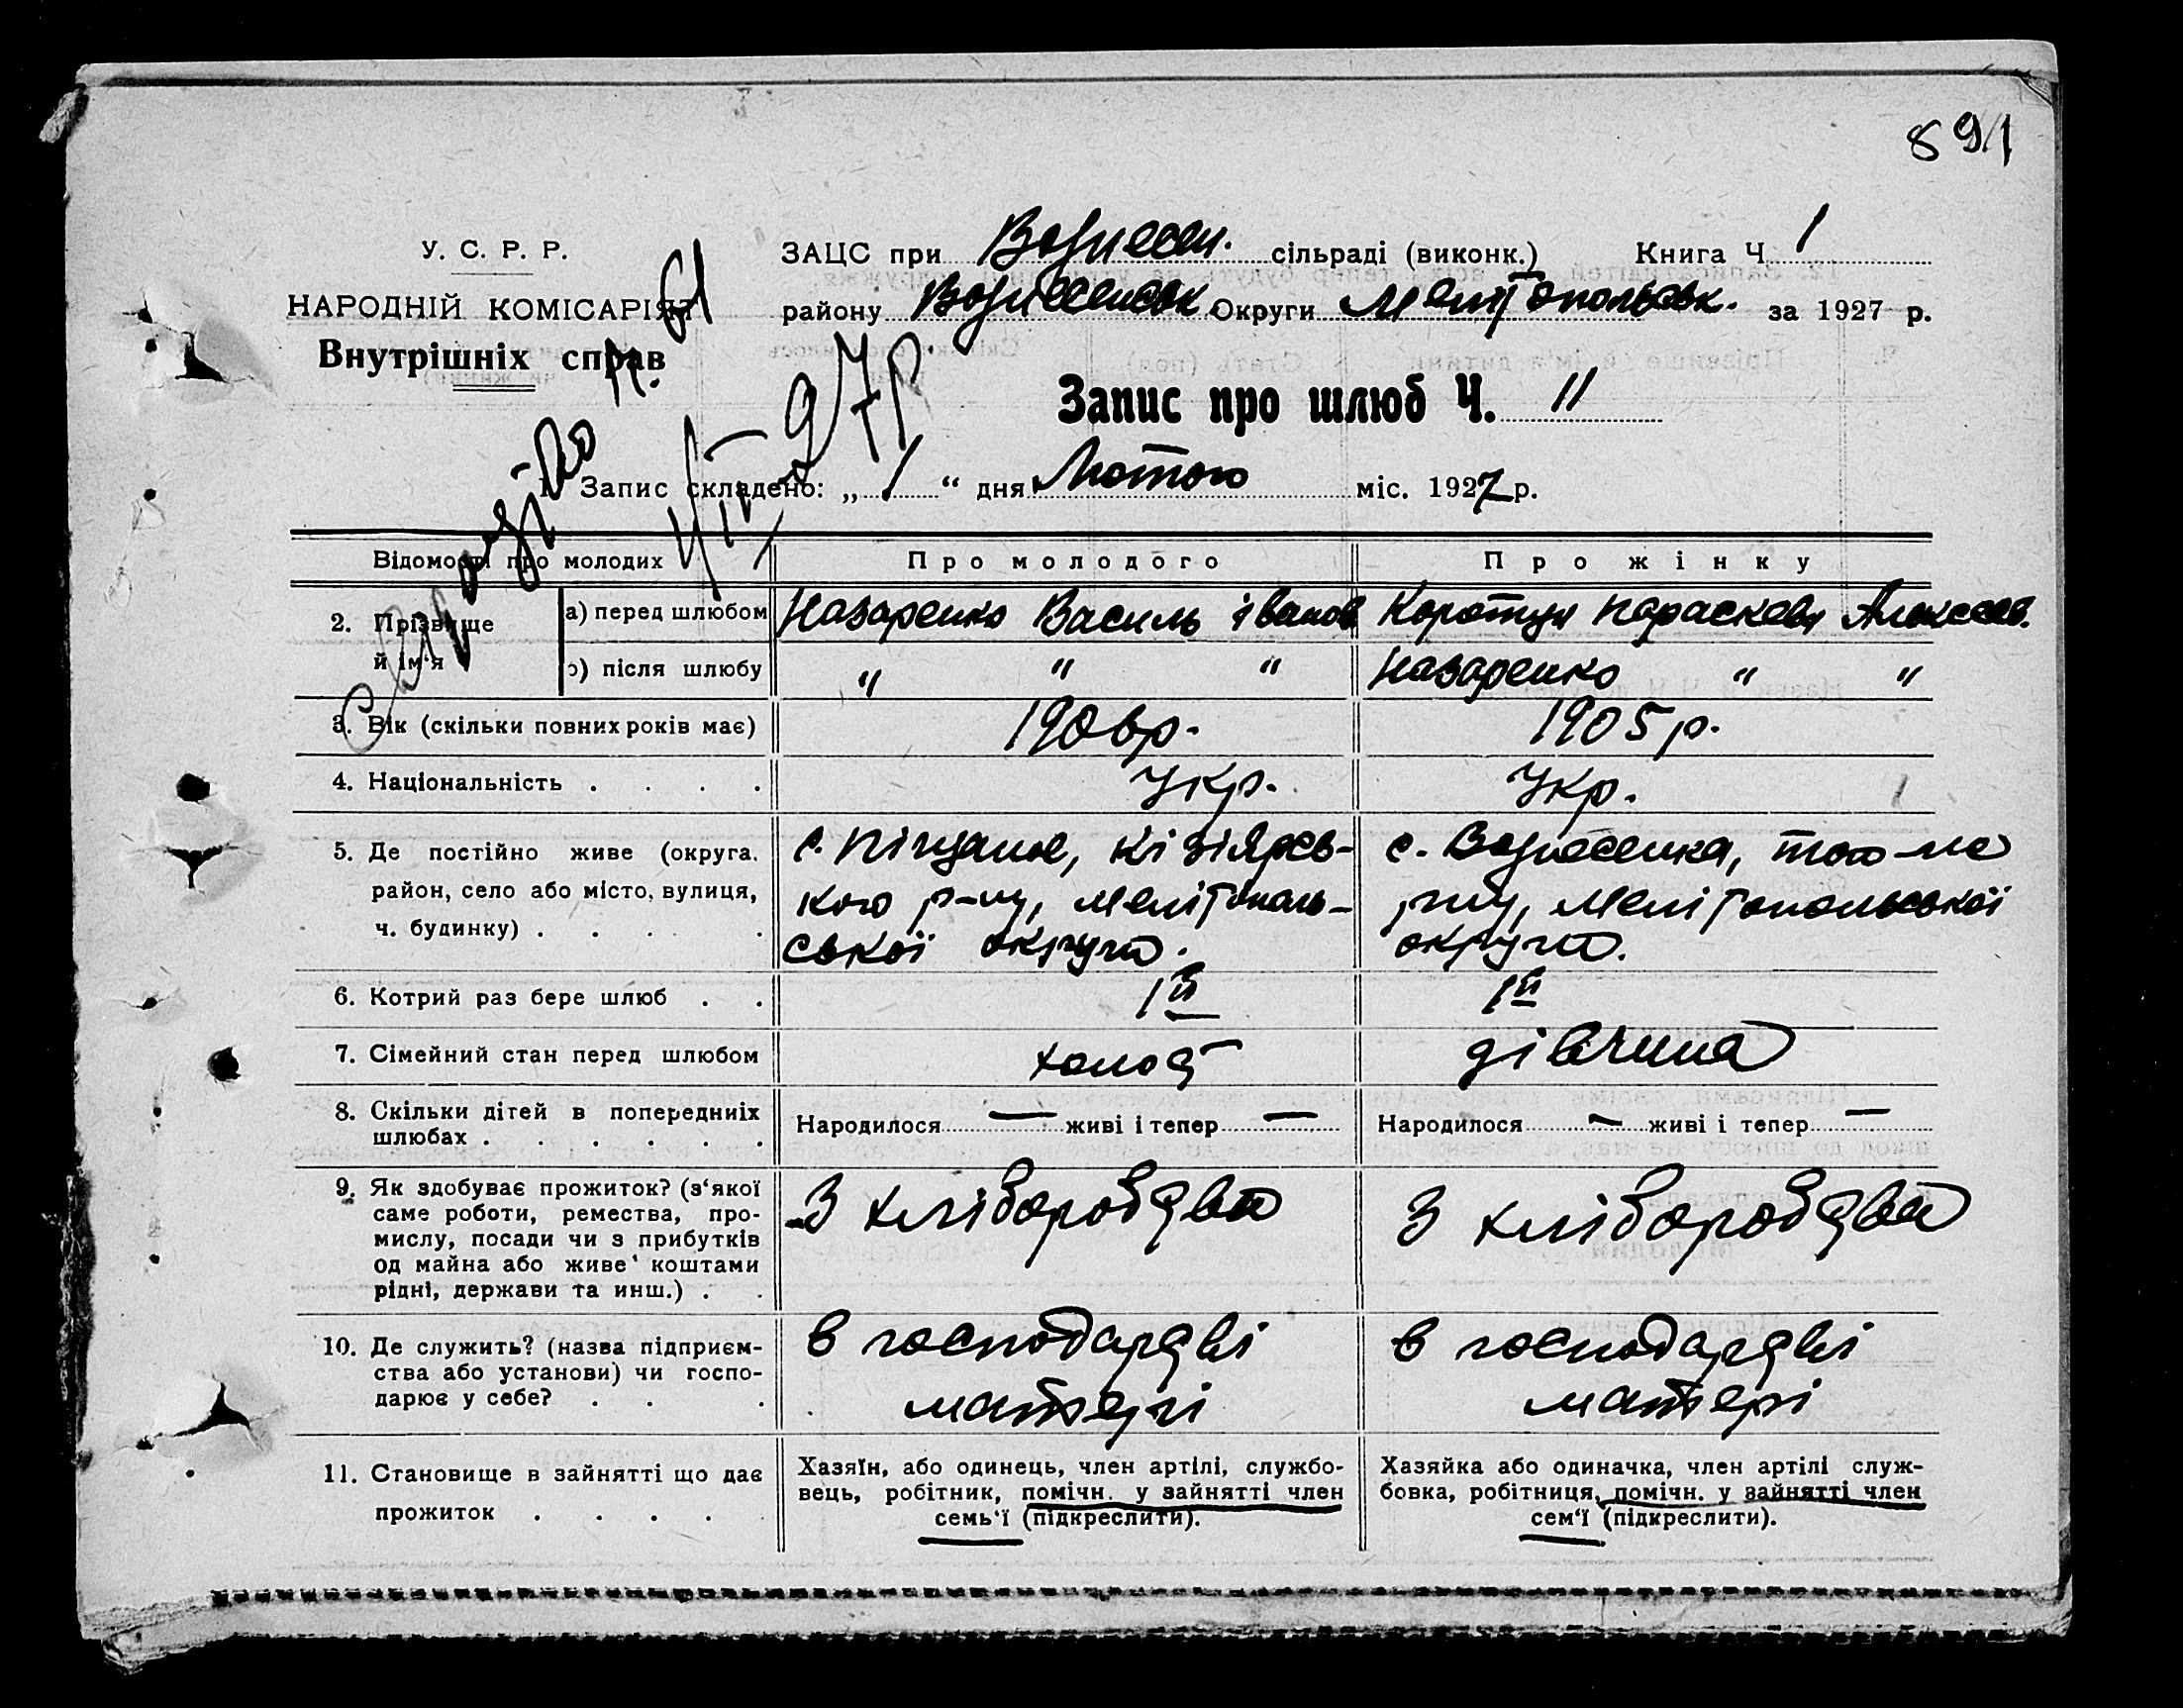 891
У. С. Р. Р.
НАРОДНІЙ КОМІСАРІЯТ
Внутрішніх справ
ЗАЦС при Вознесен. сільраді (виконк.) Книга Ч 1
району Вознесенськ Округи Мелітопольськ. за 1927 р.
Запис про шлюб Ч. 11
1. Запис складено: „ 1 “ дня Лютого міс. 1927 р.
Відомості про молодих
Про молодого
Про жінку
2. Прізвище й ім‘я
а) перед шлюбом Назаренко Василь Іванов Коротун Параскева Алексеев.
б) після шлюбу " " " Назаренко " "
3. Вік (скільки повних років має) 1906р. 1905р.
4. Національність . . . . Укр. Укр.
5. Де постійно живе (округа,
район, село або місто, вулиця,
ч. будинку) . . . .
с. Піщане, Кізіярсь-
кого р-ну, Мелітополь-
ської округи.
с. Вознесенка, того-же
р-ну, Мелітопольської
округи.
6. Котрий раз бере шлюб . . 1й 1й
7. Сімейний стан перед шлюбом холост дівчина
8. Скільки дітей в попередниіх
шлюбах . . . . . .
Народилося — живі і тепер —
Народилося — живі і тепер —
9. Як здобуває прожиток? (з‘якої
саме роботи, ремества, про-
мислу, посади чи з прибутків
од майна або живе‘ коштами
рідні, держави та инш.) . .
З хліборобства
З хліборобства
10. Де служить? (назва підприєм-
ства або установи) чи госпо-
дарює у себе? . . .
в господарстві
матері
в господарстві
матері
11. Становище в зайнятті що дає
прожиток . . . .
Хазяїн, або одинець, член артілі, службо-
вець, робітник, помічн. у зайнятті член
семь‘ї (підкреслити).
Хазяйка або одиначка, член артілі служ-
бовка, робітниця, помічн. у зайнятті член
сем‘ї (підкреслити).